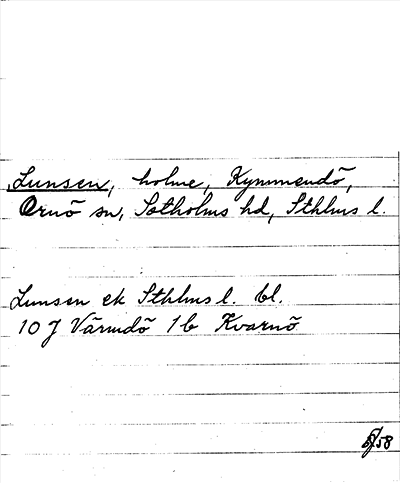 Lunsen, holme, Kymmendö,
Ornö sn, Sotholms hd, Sthlms l.
Lunsen ek Sthlms l. bl.
10 J Värmdö 1b Kvarnö
58